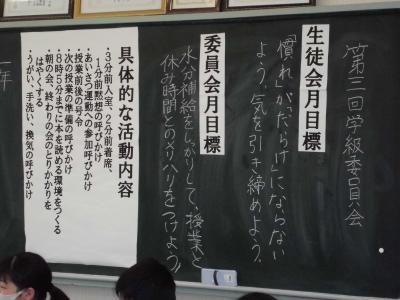 第三回学級委員会
生徒会月目標
「慣れ」が「だらけ」にならない
よう、気を引き締めよう。
委員会月目標
水分補給をしっかりして、授業と
休み時間とのメリハリをつけよう!
具体的な活動内容
・3分前入室、2分前着席、
1分前黙想の呼びかけ
・あいさつ運動への参加呼びかけ
・授業前後の号令
・次の授業の準備の呼びかけ
・8時5分までに本を読める環境をつくる
・朝の会、終わりの会のとりかかりを
はやくする
・うがい、手洗い、換気の呼びかけ
一年